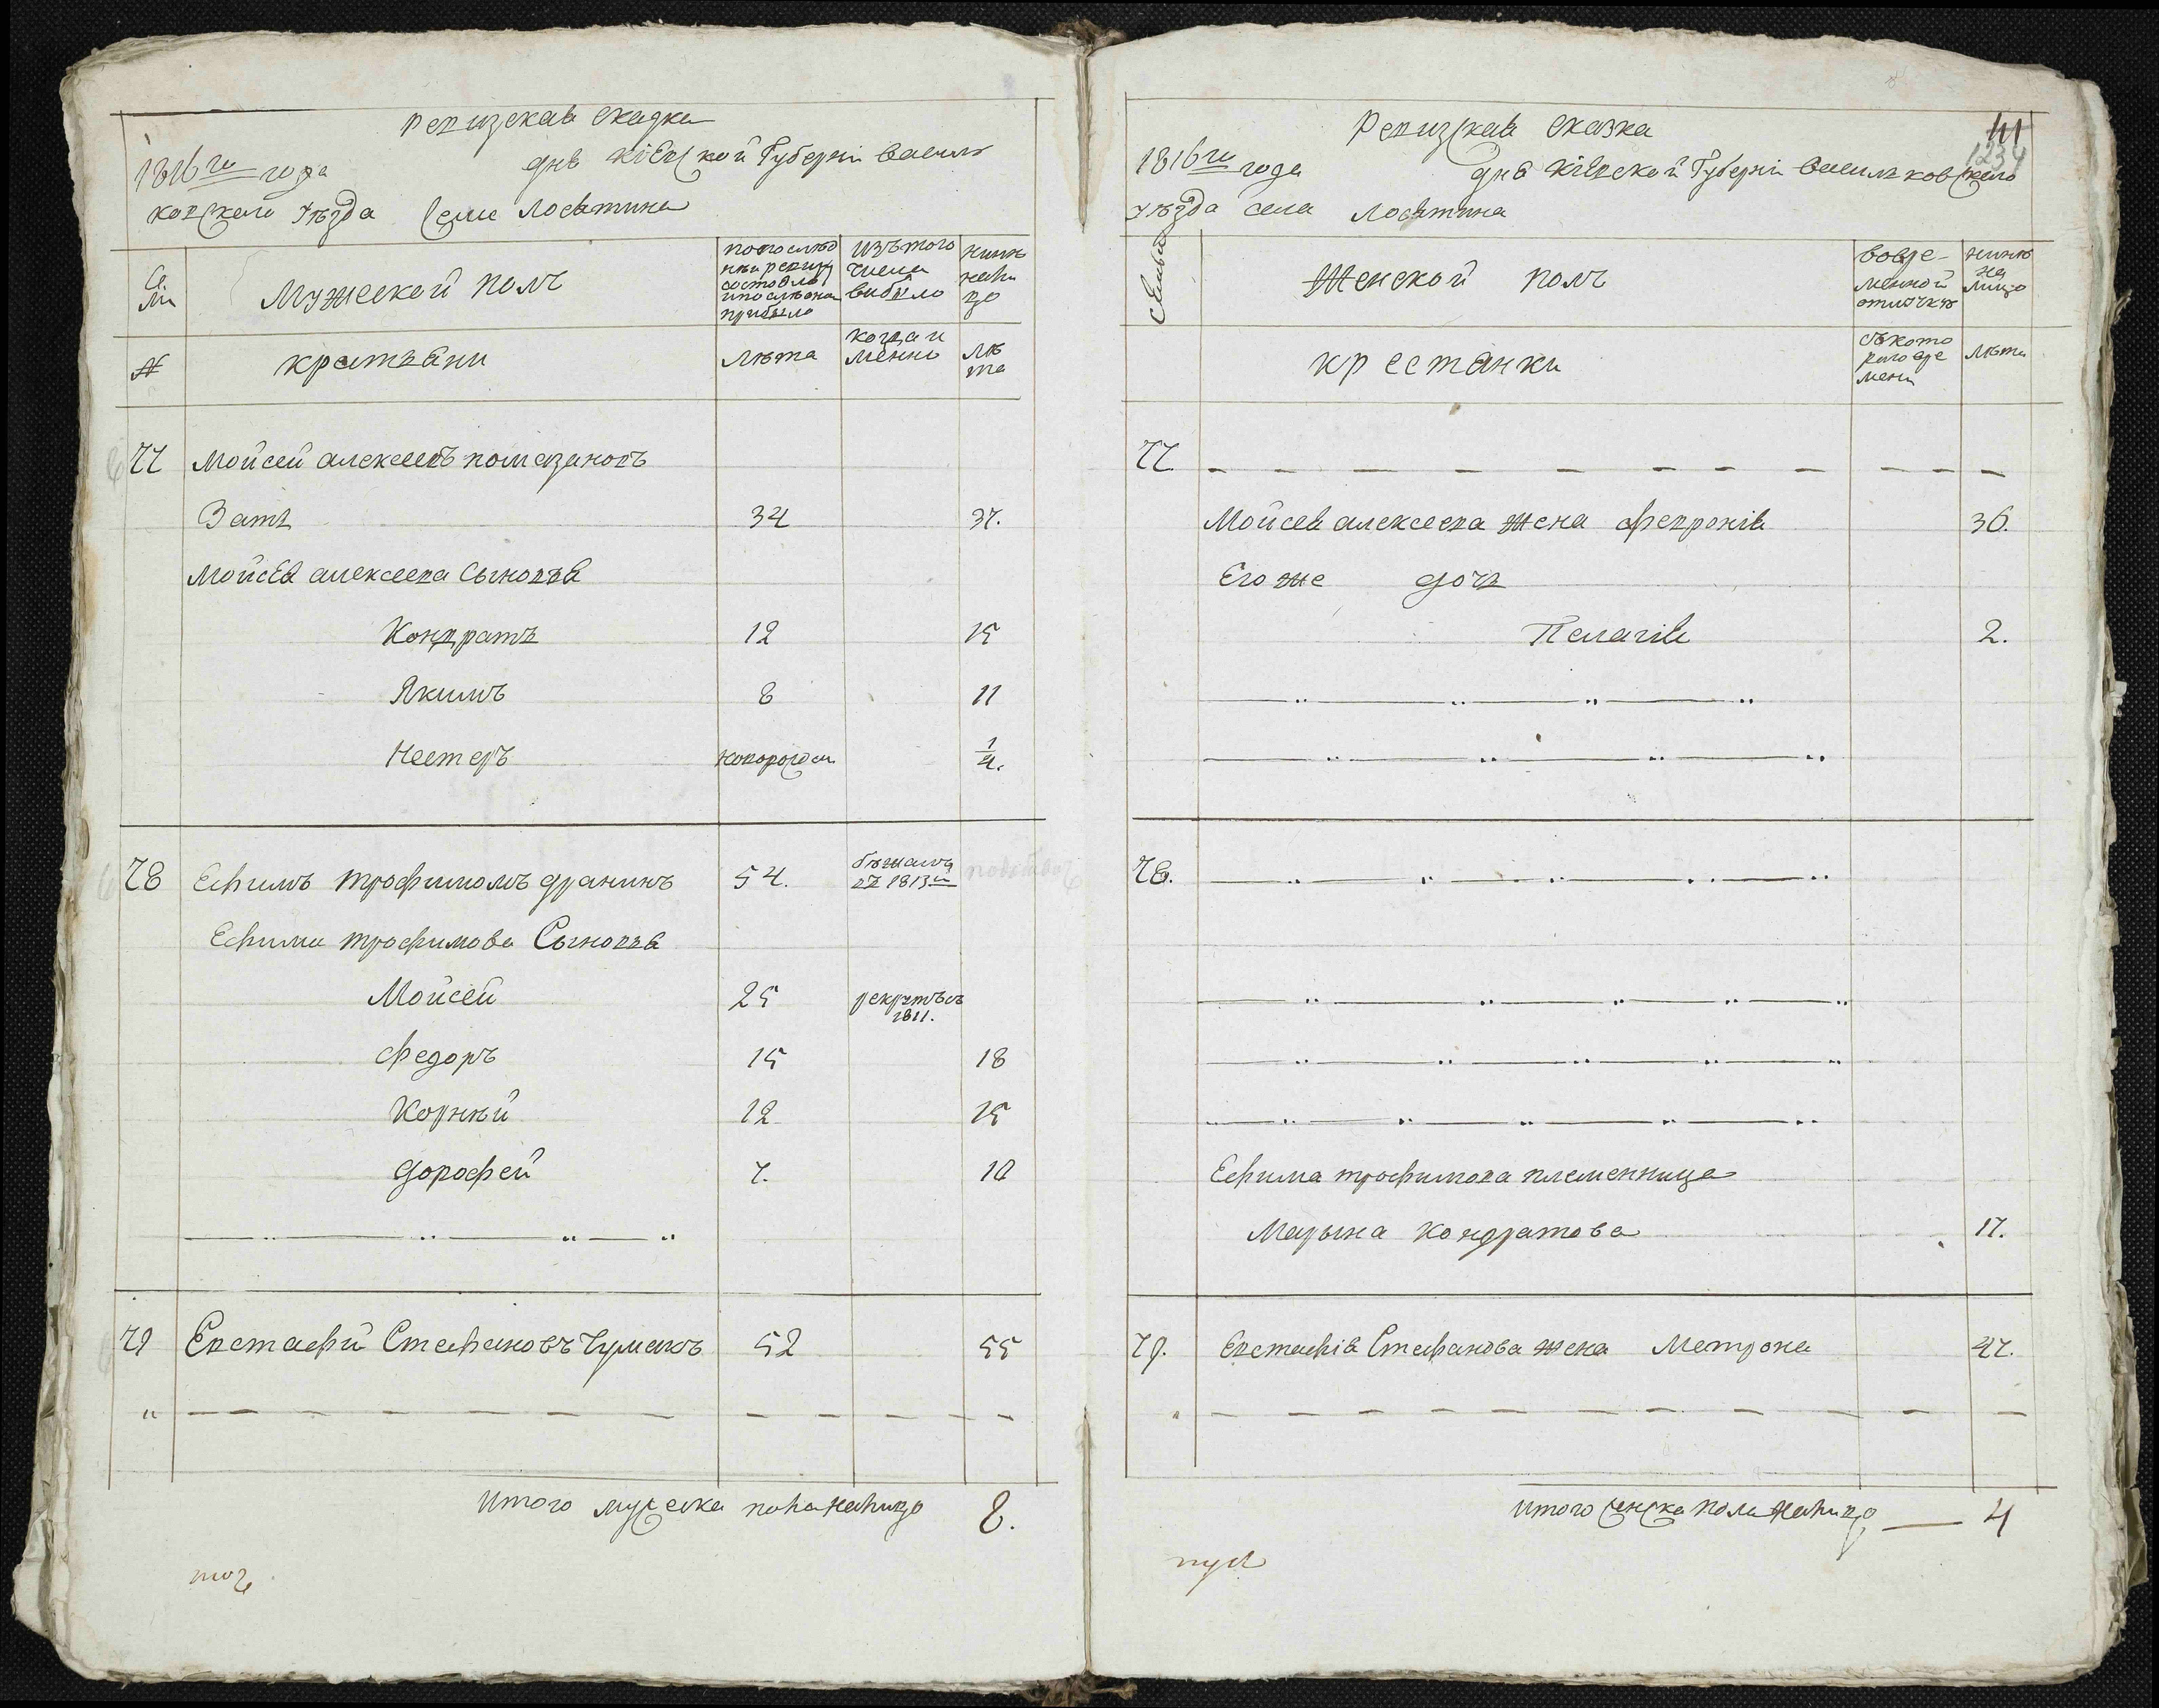 Ревизская сказка
1816го года дня Кіевской Губерніи Василь
ковского уезда Села Лосятина
Се
мьи
Мужеской полъ
по последней ревизіи состояло и после оной прибыло
Изъ того числа выбыло
Ныне налицо
№
крестьяни
Лѣта
когда именно
Лѣта
77 Мойсей алексеевъ помазановъ
Зять 34 37.
Мойсея алексеева Сыновья
Кондратъ 12 15
Якимъ 8 11
Нестеръ новорожден 1/4.
78 Ефимъ трофимовъ драникъ 54. бѣжалъ въ 1813м
Ефима трофимова Сыновья
Мойсей 25 рекрутъ въ 1811.
Федоръ 15 18
Корнѣй 12 15
Дорофей 7. 10
79 Евстафій Стефановъ Чумакъ 52 55
Итого мужеска пола налицо 8.
41
1234
Ревизская сказка
1816го года дня Кіевской Губерніи Васильковского
уѣзда села Лосятина
Семьи
Женской полъ
Во временной отлучкѣ
Ныне на лицо
крестянки
Съ которого времени
Лѣта
77
Мойсея алексеева жена Февронія 36.
Его же дочь
Пелагія 2.
78.
Ефима трофимова племенница
Марына Кондратова 17.
79. Евстафія Стефанова жена Матрона 47.
Итого женска пола налицо — 4